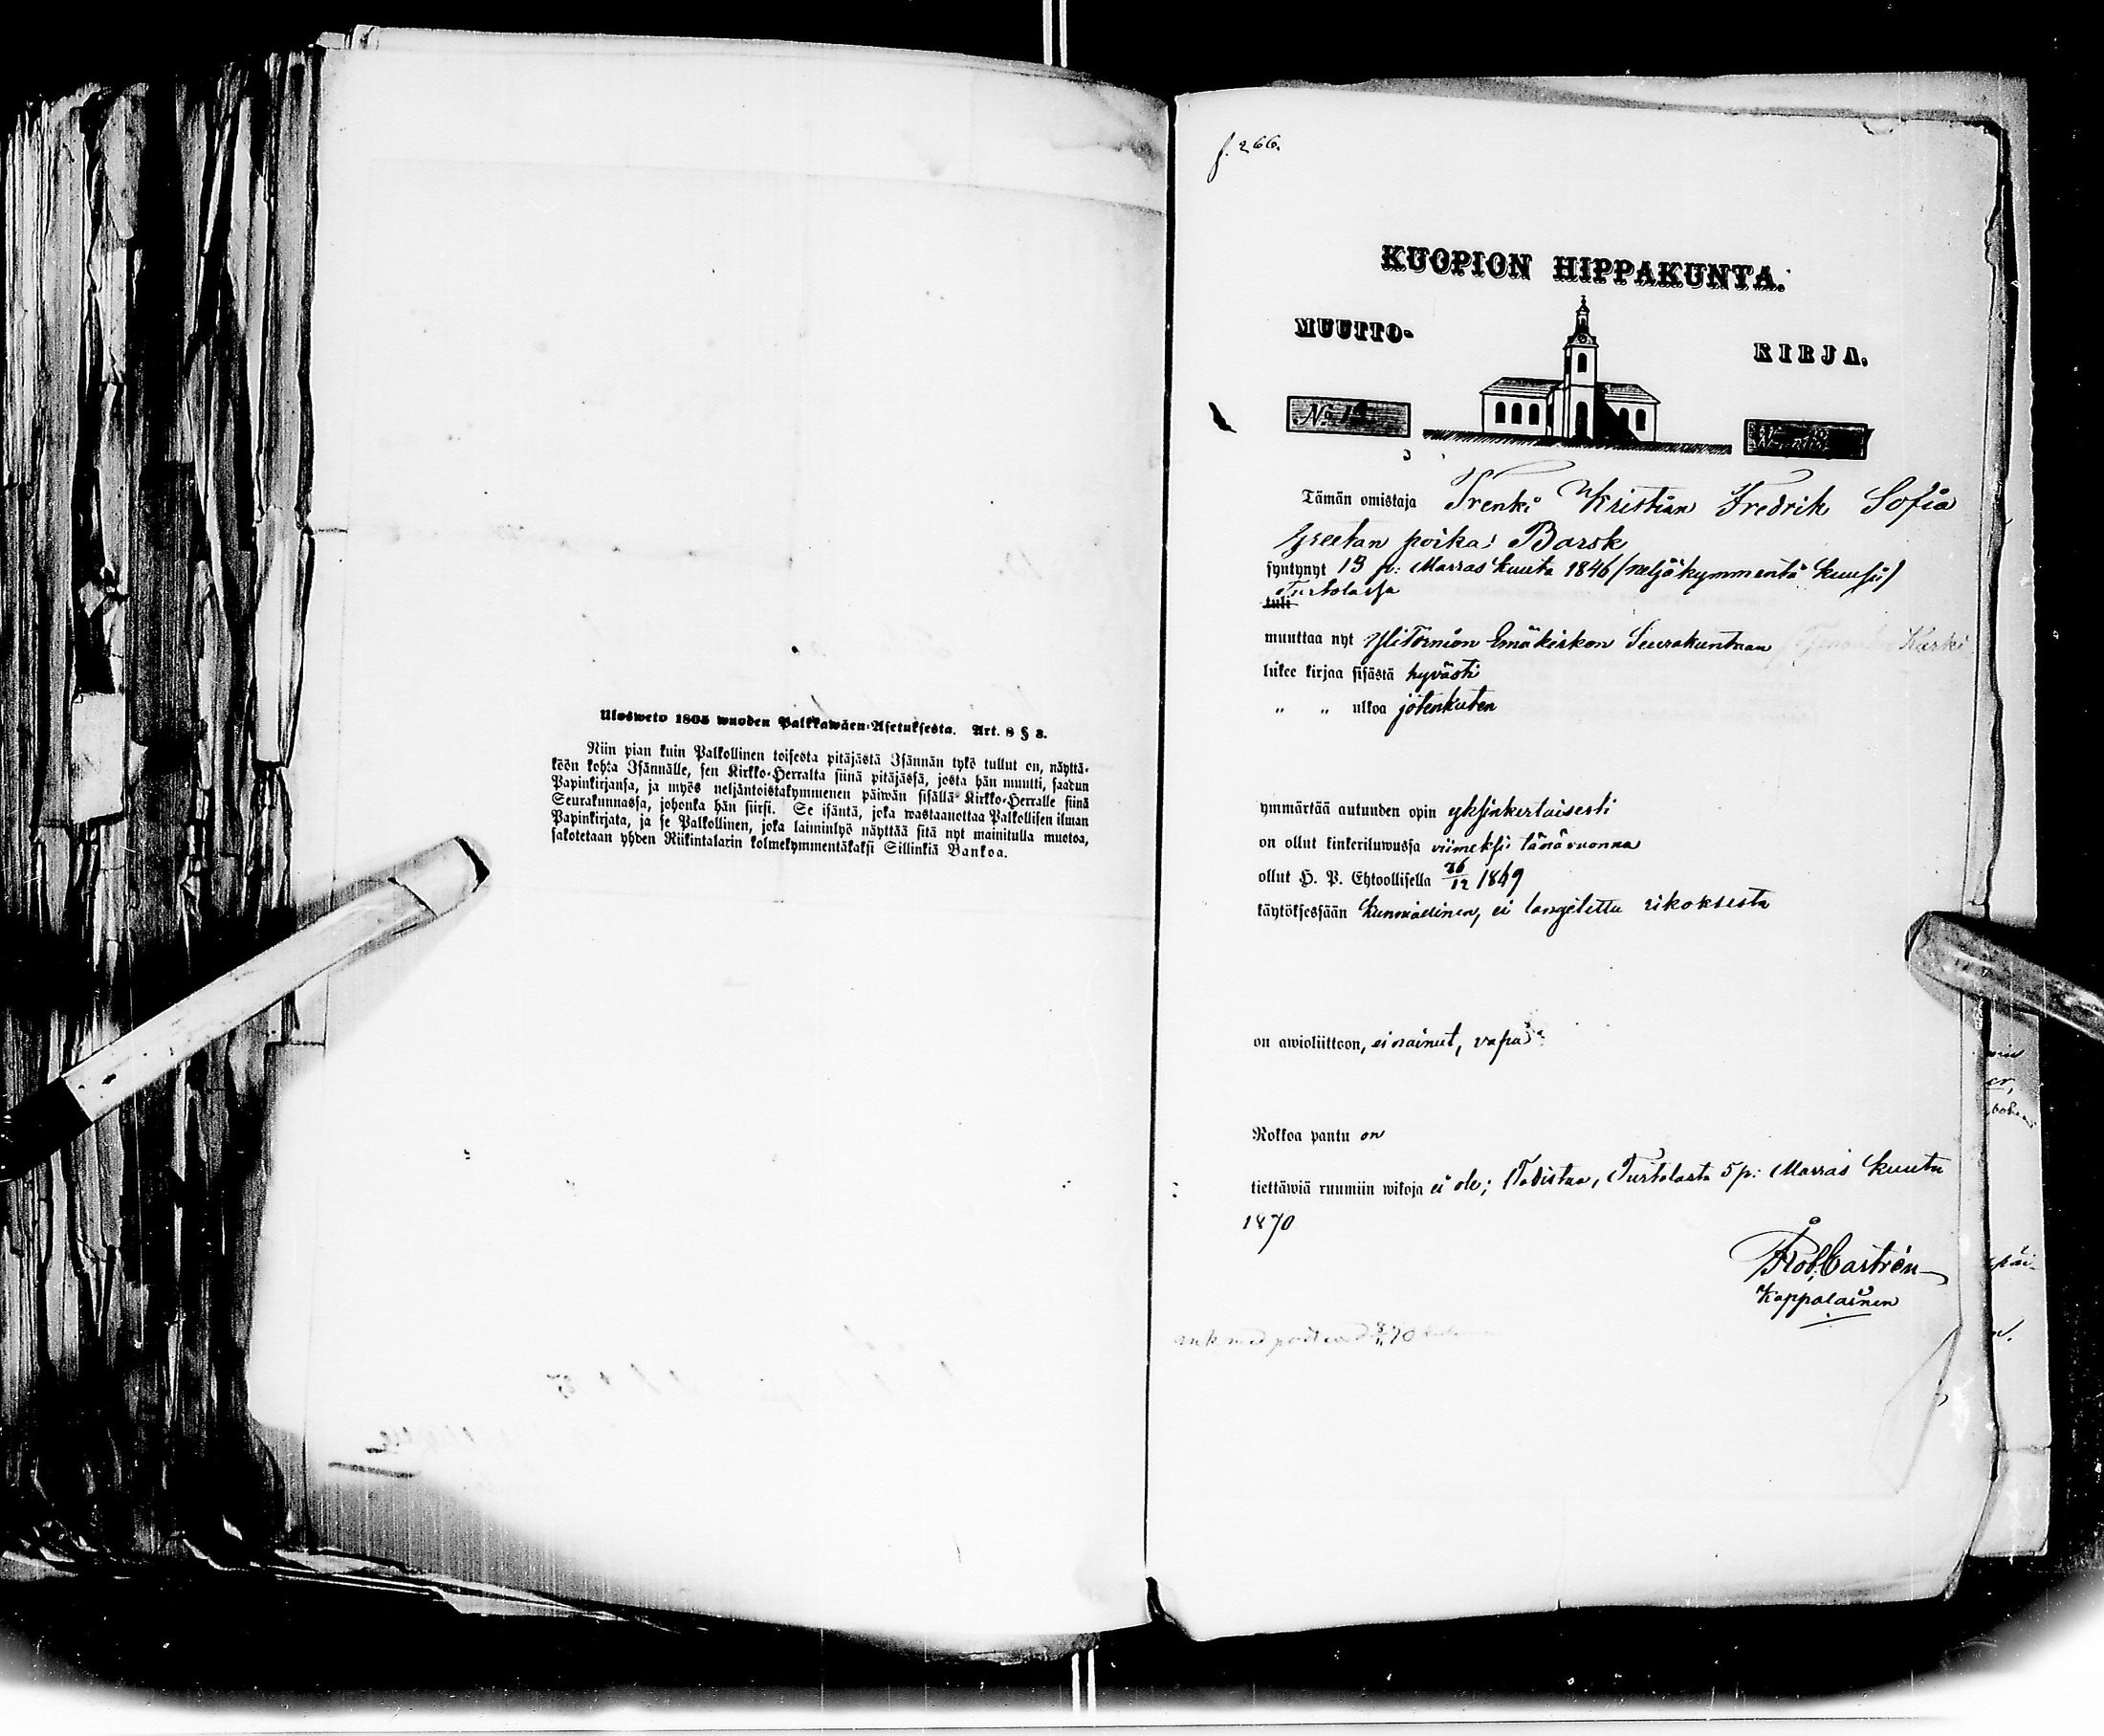 Ulosweto 1805 wuoden Palkkawäen-Asetuksesta. Art. 8 § 3.
Niin pian kuin Palkollinen toisesta pitäjästä Isännän tykö tullut on, näyttä-
köön kohta Isännälle, sen Kirkko-Herralta siinä pitäjässä, josta hän muutti, saadun
Papinkirjansa, ja myös neljäntoistakymmenen päiwän sisällä Kirkko-Herralle siinä
Seurakunnassa, johonka hän siirsi. Se isäntä, joka wastaanottaa Palkollisen ilman
Papinkirjata, ja se Palkollinen, joka laiminlyö näyttää sitä nyt mainitulla muotoa,
sakotetaan yhden Riikintalarin kolmekymmentäkaksi Sillinkiä Bankoa.
f. 266.
KUOPION HIPPAKUNTA.
MUUTTO-
KIRJA.
No. 14
Tämän omistaja Trenki Kristian Fredrik Sofia
Greetan poika Barsk
syntynyt 13 p: Marras kuuta 1846 (neljäkymmentä kuusi)
Turtolassa
tuli
muuttaa nyt YliTornion Emäkirkon Seurakuntaan
lukee kirjaa sisästä hyvästi
" " ulkoa jotenkuten
ymmärtää autuuden opin yksinkertaisesti
on ollut kinkeriluwussa viimeksi tänävuonna
ollut H. P. Ehtoollisella 26/12 1869
käytöksessään kunniallinen, ei langetettu rikoksesta
on awioliittoon, ei nainut, vapa
Rokkoa pantu on
tiettäwiä ruumiin wikoja ei ole; Todistaa, Turtolasta 5 p: Marras kuuta
1870
Rob. Castrén
Kappalainen